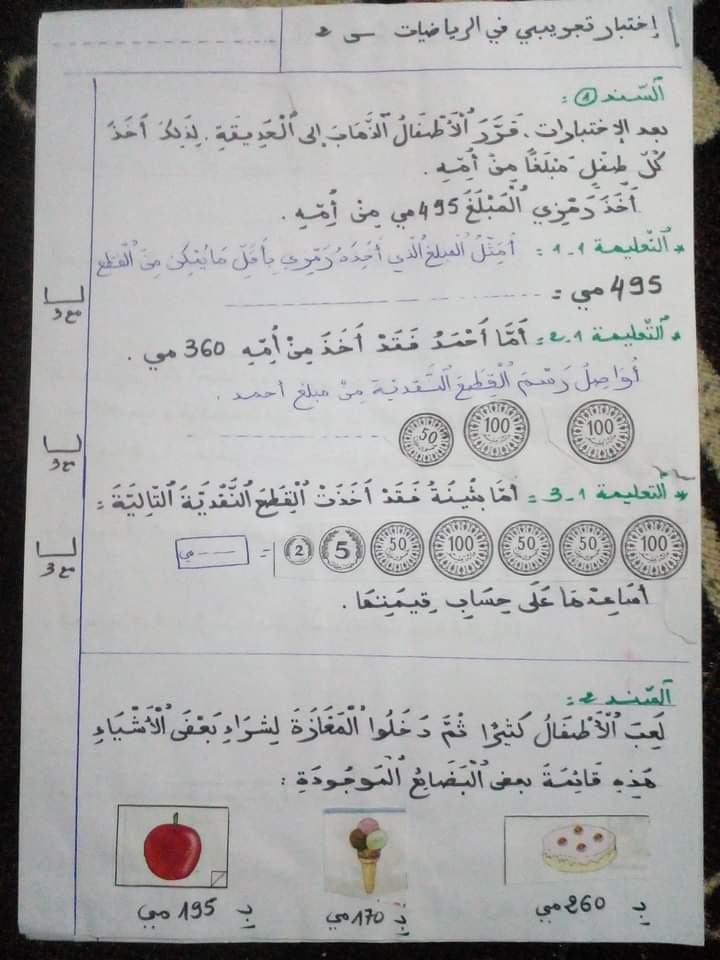 إختبار تجريبي في الرياضيات س 2
السّند 1 :
بعد الإختبارات، قَرَّرَ الْأَطْفَالُ الذَّهَابَ إلى الْحَدِيقَةِ. لِذَلِكَ أَخَذَ
كُلّ طِفْلٍ مَبْلَغًا مِنْ أُمِّهِ.
أَخَذَ رَمْزِي الْمَبْلَغَ 495 مي مِنْ أُمِّهِ.
* التّعليمة 1-1 : أُمَثِّلُ المبلغ الّذي أَخَذَهُ رَمْزِي بِأَقَلِّ مَا يُمْكِن مِنَ الْقِطَعِ
495 مي =
مع 3
* التّعليمة 1-2 : أَمَّا أَحْمَدُ فَقَدْ أَخَذَ مِنْ أُمِّهِ 360 مي.
أُوَاصِلُ رَسْمَ الْقِطَعِ النَّقْدِيَّة مِنْ مبلغ أحمد.
100 100 50
مع 3
* التّعليمة 1-3 : أمَّا بُثَيْنَةُ فَقَدْ أَخَذَتْ الْقِطَعَ النَّقْدِيَّةَ التَّالِيَّةَ :
100 50 50 100 50 5 2 = مي
مع 3
أُسَاعِدُهَا عَلَى حِسَابِ قِيمَتِهَا.
السّند 2 :
لَعِبَ الْأَطْفَالُ كَثِيرًا ثُمَّ دَخَلُوا الْمَغَازَةَ لِشِرَاءِ بَعْضَ الْأَشْيَاءِ
هَذِهِ قَائِمَةَ بعض الْبَضَائِعُ الْمَوْجُودَةِ :
بـ 260 مي
بـ 170 مي
بـ 195 مي